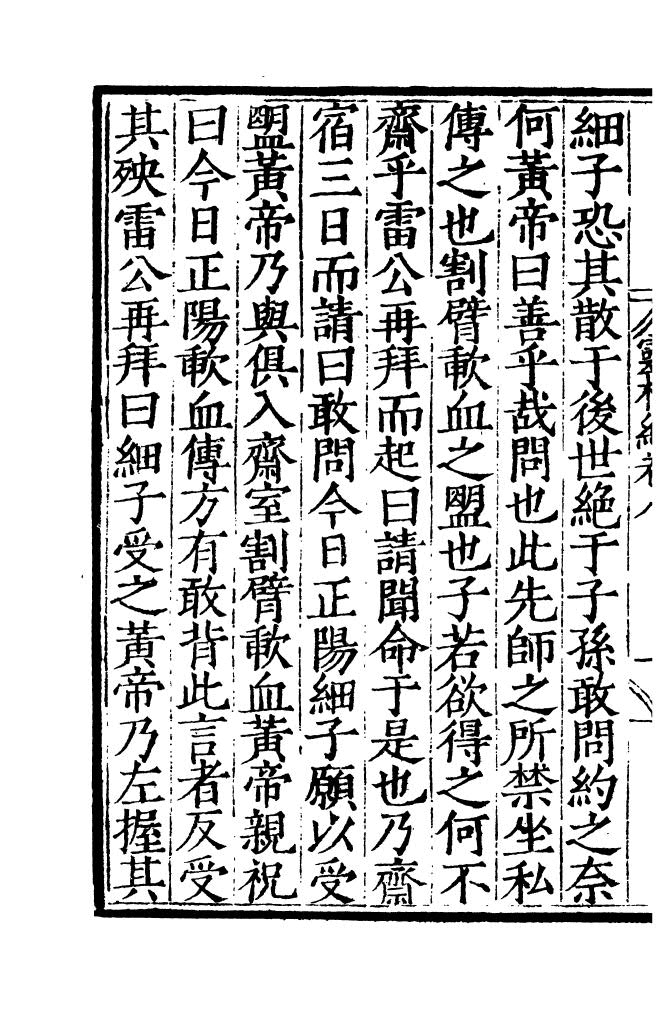 細子恐其散于後世絶于子孫敢問約之奈
何黃帝曰善乎哉問也此先師之所禁坐私
傳之也割臂歃血之盟也子若欲得之何不
齋乎雷公再拜而起曰請聞命于是也乃齋
宿三日而請曰敢問今日正陽細子願以受
盟黃帝乃與俱入齋室割臂歃血黃帝親祝
曰今日正陽歃血傳方有敢背此言者反受
其殃雷公再拜曰細子受之黃帝乃左握其